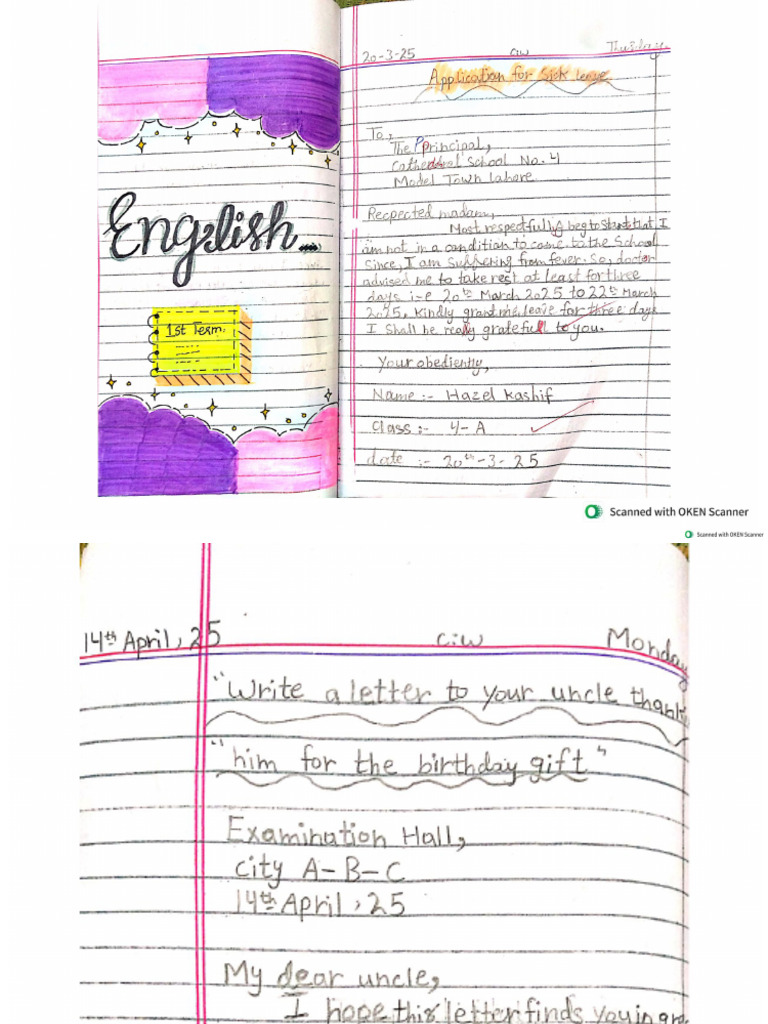 English....
1st Term.
20-3-25 c.w Thusday
Application for sick leave
To,
The Pprincipal,
Cathedral School No. 4
Model Town lahore
Recpected madam,
Most respectfully beg to that I
am not in a condition to come to the School
Since, I am suffering from fever. So, docter
advised me to take rest at least for three
days i-e 20th March 2025 to 22th March
2025, kindly grant me leave for three days
I shall be really grateful to you.
Your obediently,
Name :- Hazel Kashif
Class :- 4-A
date :- 20th-3-25
Scanned with OKEN Scanner
Scanned with OKEN Scanner
14th April, 25 c.w Monday
"Write a letter to your uncle thank
"him for the birthday gift"
Examination Hall,
city A-B-C
14th April, 25
My dear uncle,
I hope this letter finds you in